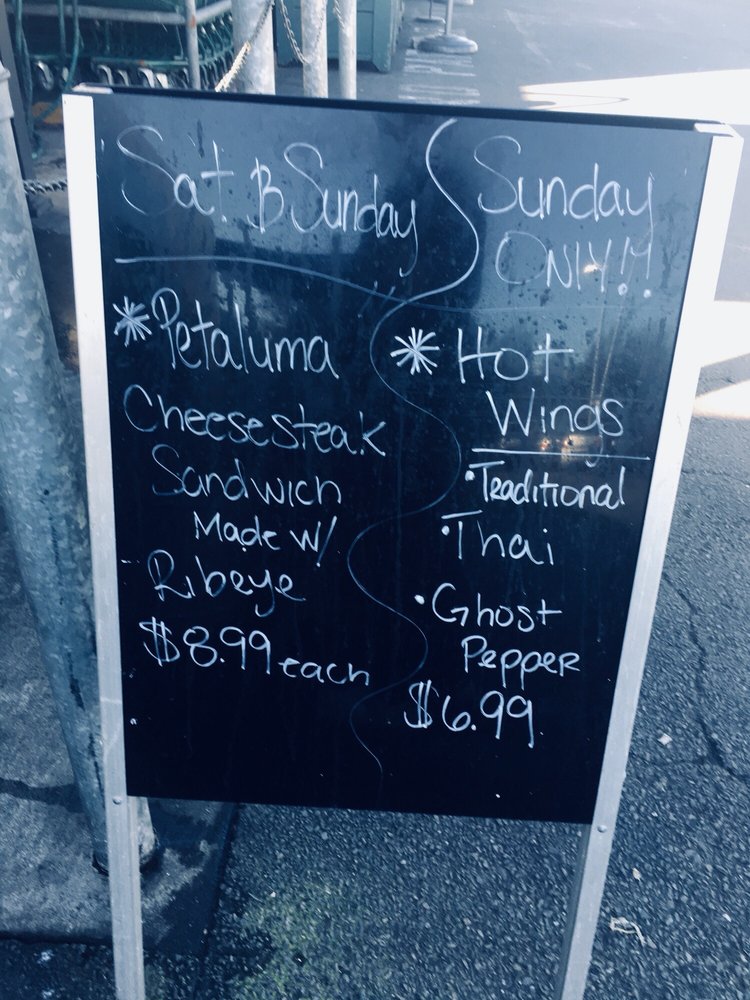 Sat & Sunday
* Petaluma
Cheesesteak
Sandwich
Made w/
Ribeye
$8.99 each
Sunday
ONLY!!
* Hot
Wings
• Traditional
• Thai
• Ghost
Pepper
$6.99